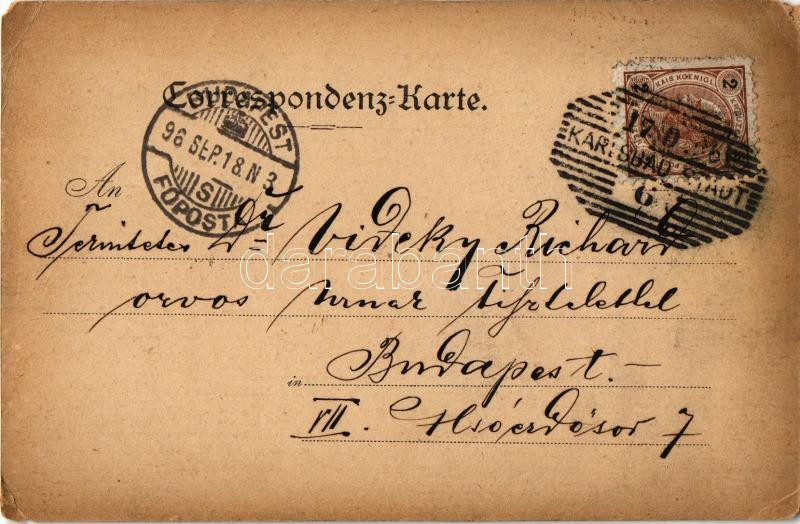 Correspondenz-Karte.
BUDAPEST
96 SEP. 18. N 3
S
FŐPOSTA
KAIS. KOENIGL.
2 2
KARLSBAD STADT
6
An
Dr Vidéky Richard
orvos urnak
in Budapest.–
VII. Alsóerdősor 7
darabanth